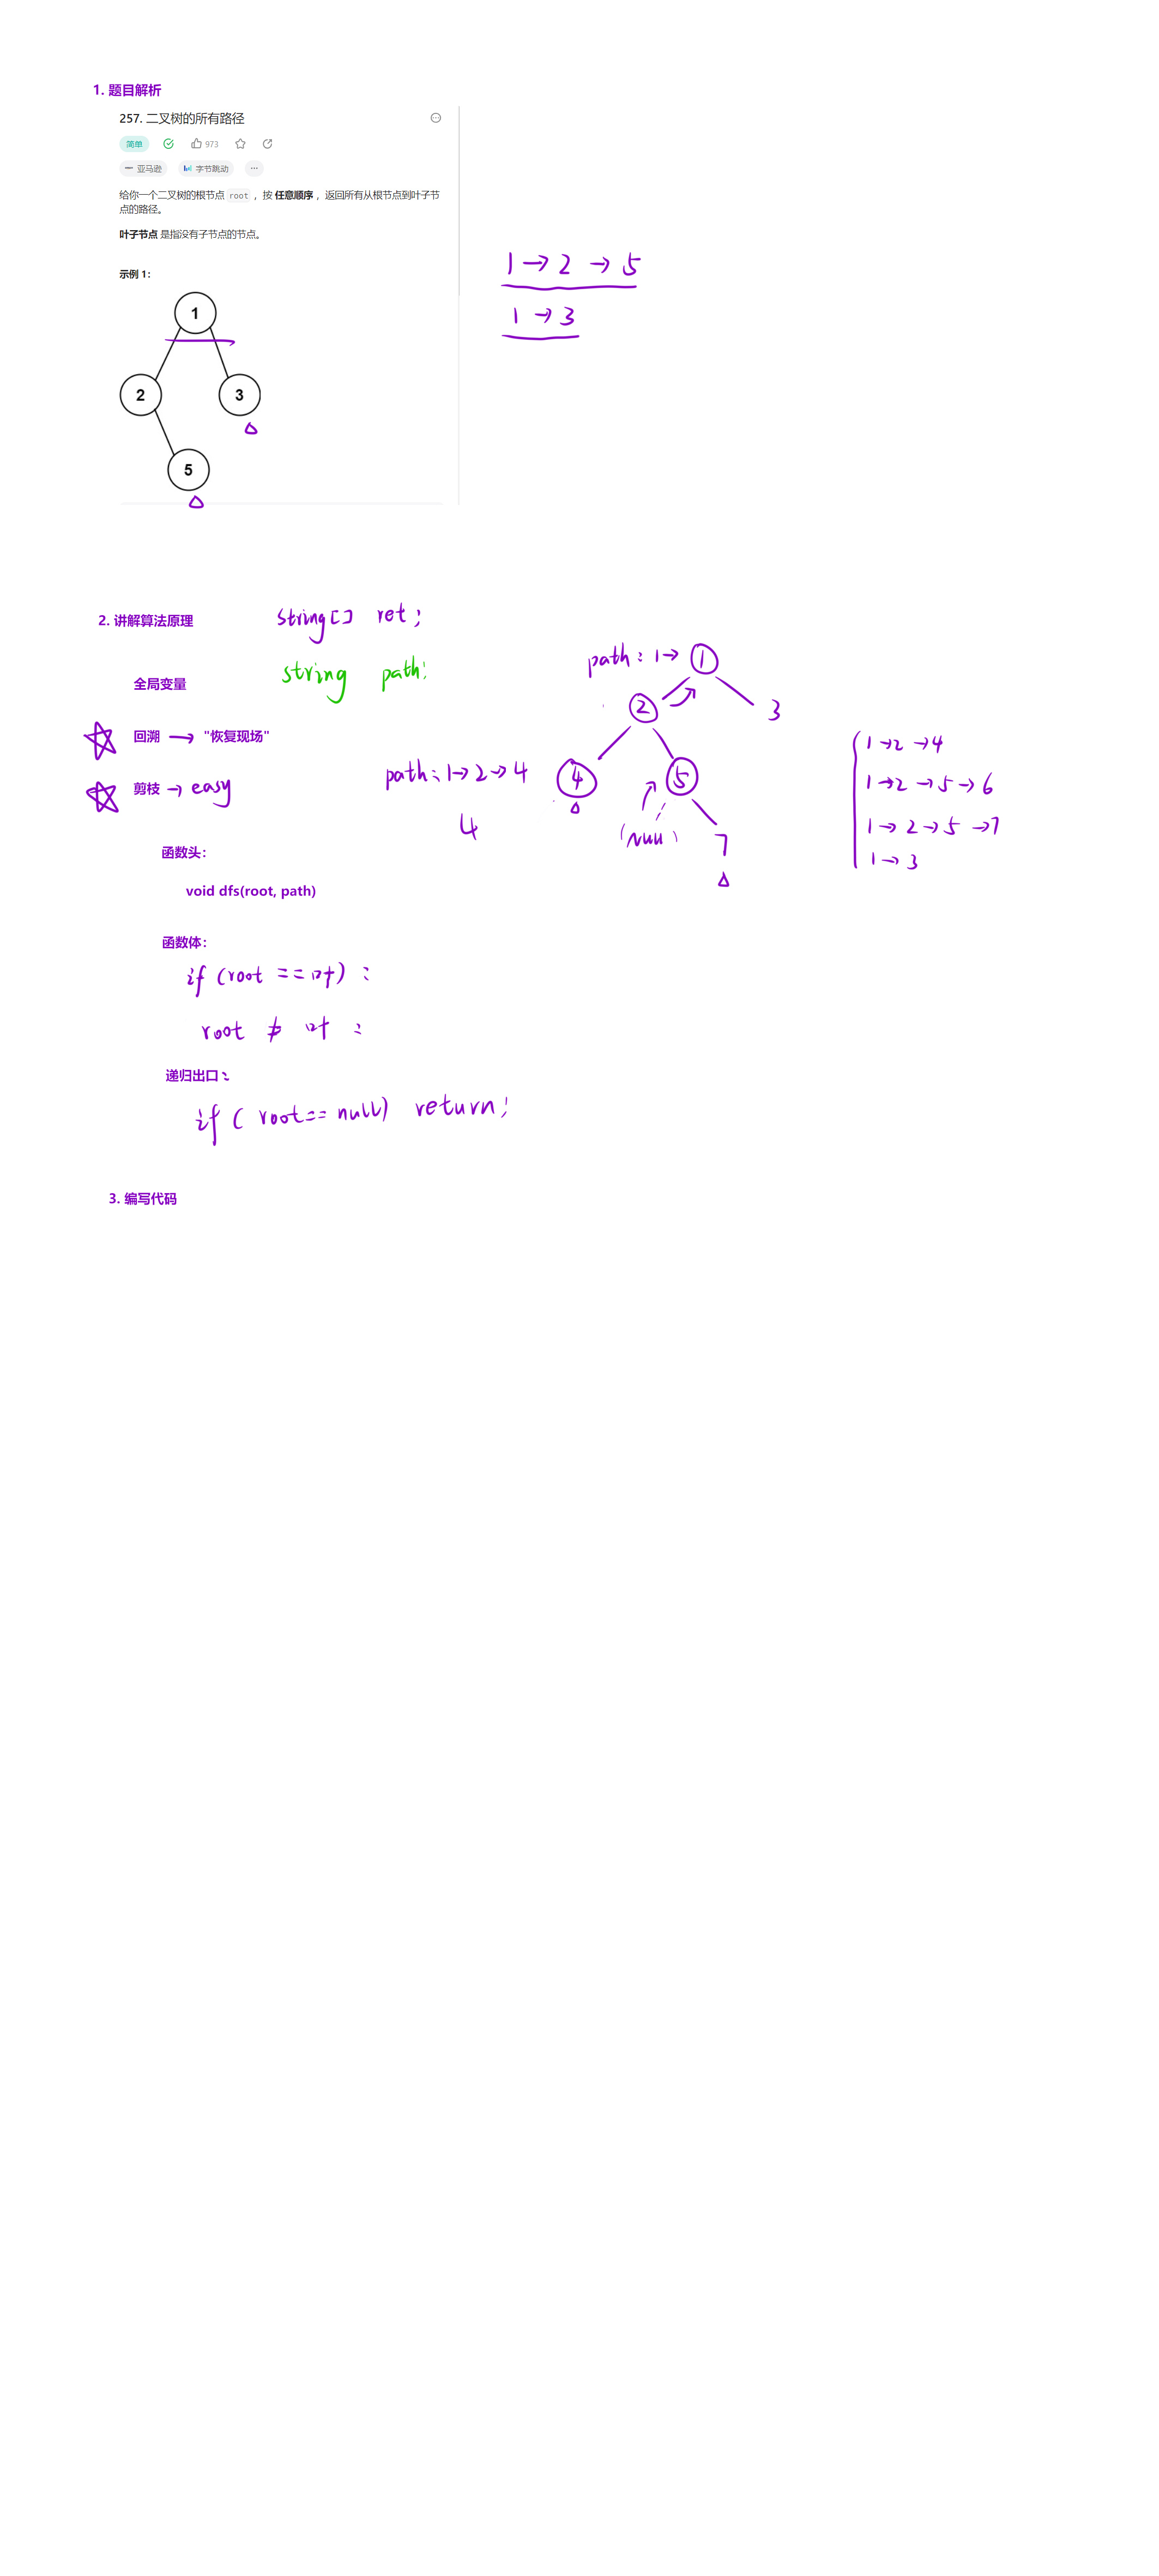 1. 题目解析
257. 二叉树的所有路径
简单 973
亚马逊 字节跳动 ...
给你一个二叉树的根节点 root ，按 任意顺序 ，返回所有从根节点到叶子节
点的路径。
叶子节点 是指没有子节点的节点。
示例 1：
1
2 3
5
1 → 2 → 5
1 → 3
2. 讲解算法原理
string[] ret;
string path;
全局变量
回溯 → "恢复现场"
剪枝 → easy
path: 1→ 1
2 3
path: 1→2→4 4 5
4
(null) 7
1→2→4
1→2→5→6
1→2→5→7
1→3
函数头：
void dfs(root, path)
函数体：
if (root == 叶) :
root ≠ 叶 :
递归出口：
if ( root == null) return;
3. 编写代码